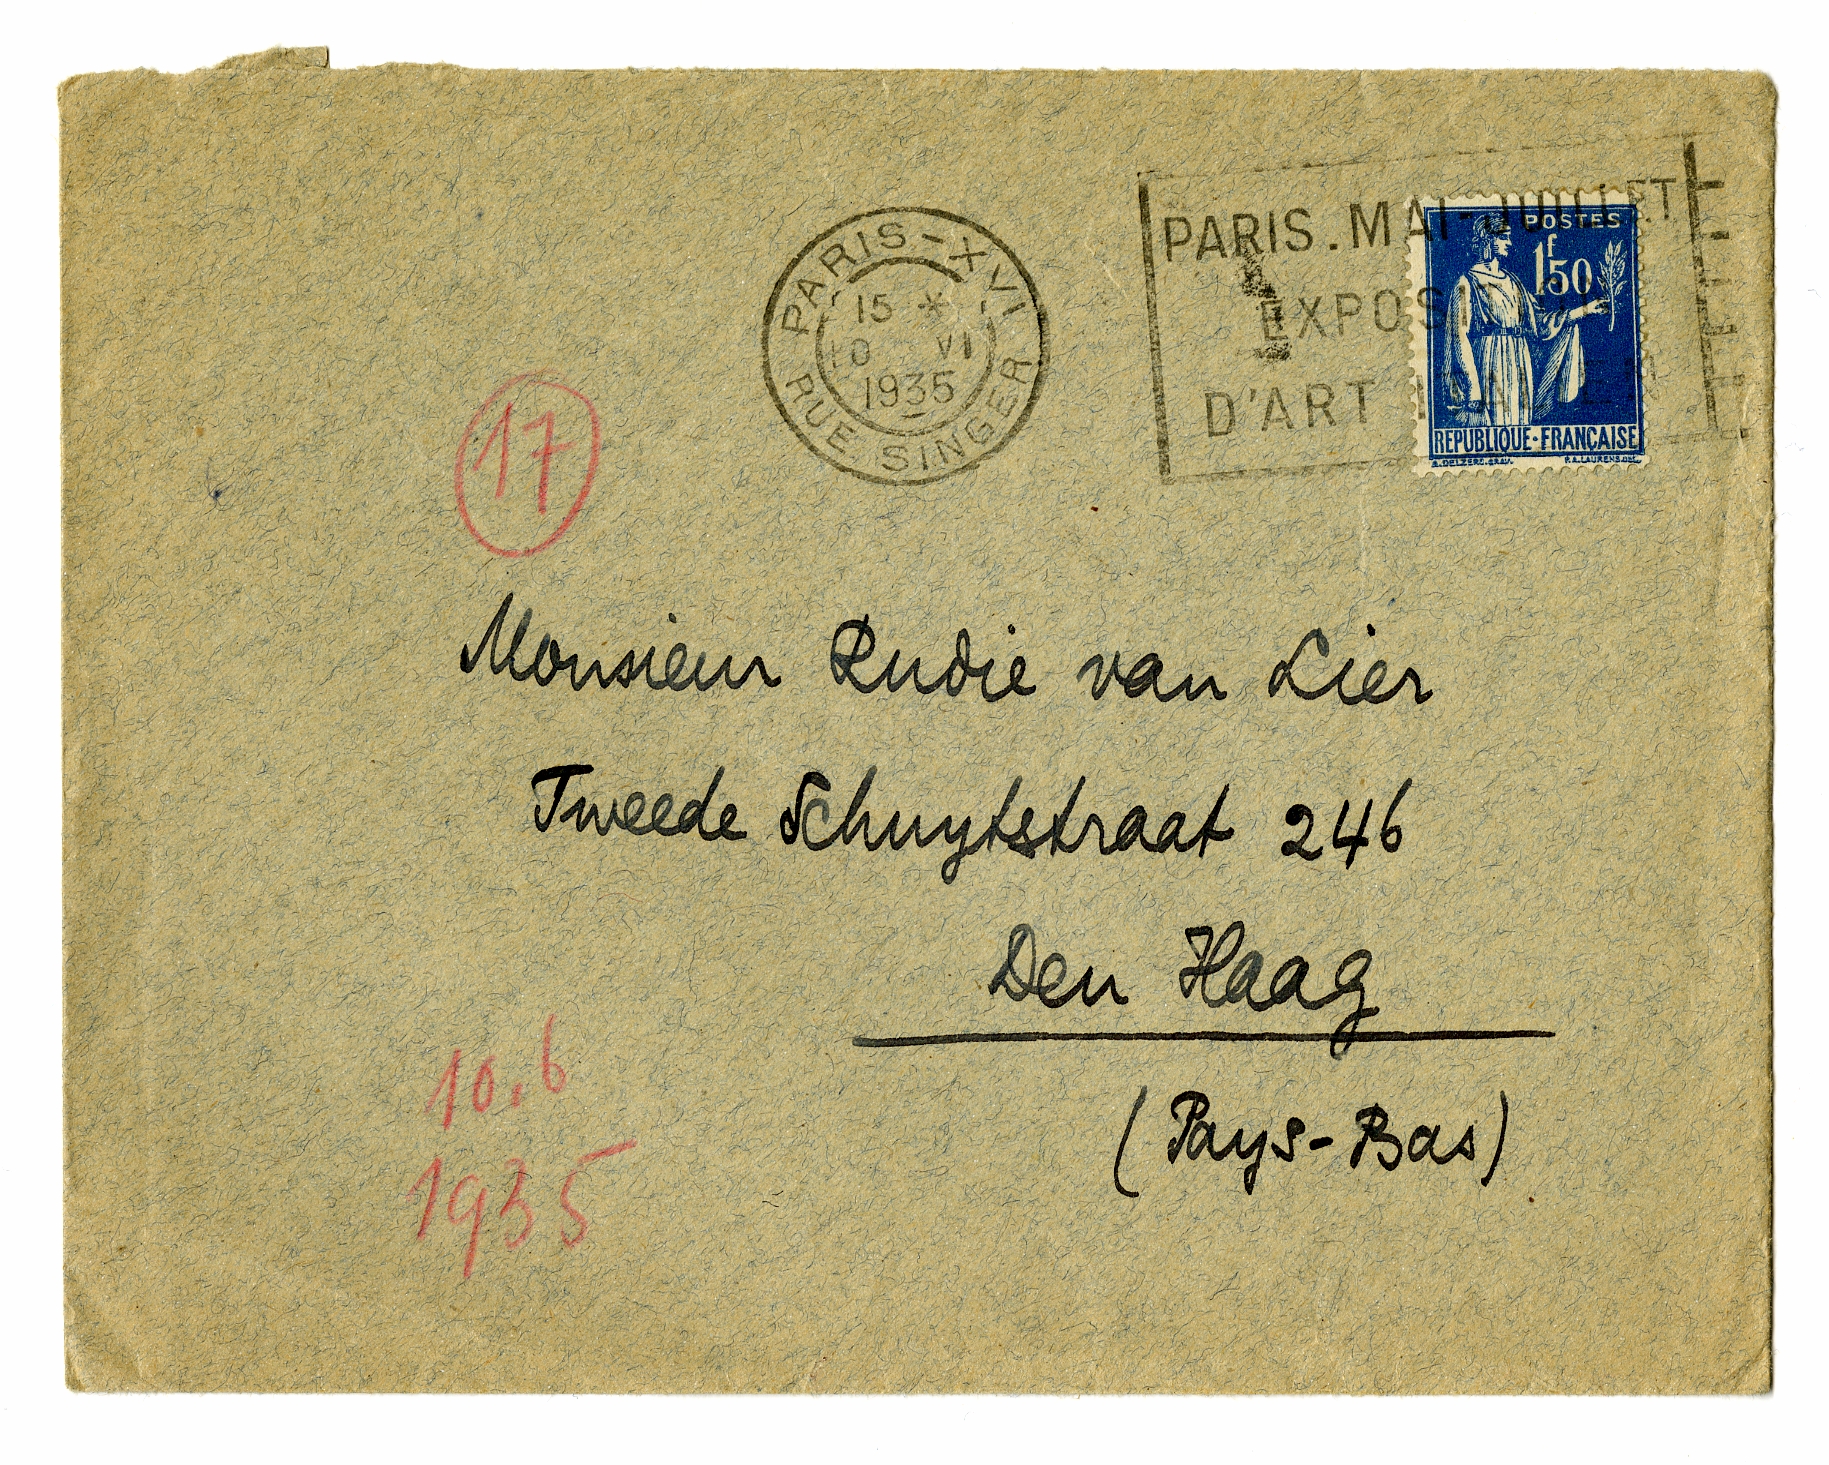 PARIS-XVI
15 *
10 VI
1935
RUE SINGER
PARIS.MAI-JUILLET
EXPOSITION
D'ART
POSTES
1f50
REPUBLIQUE·FRANÇAISE
17
Monsieur Rudie van Lier
Tweede Schuytstraat 246
Den Haag
(Pays-Bas)
10.6
1935